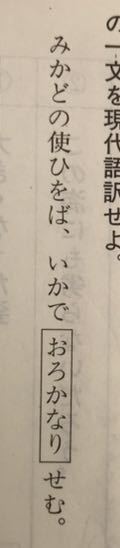 の一文を現代語訳せよ。
みかどの使ひをば、いかでおろかなりせむ。